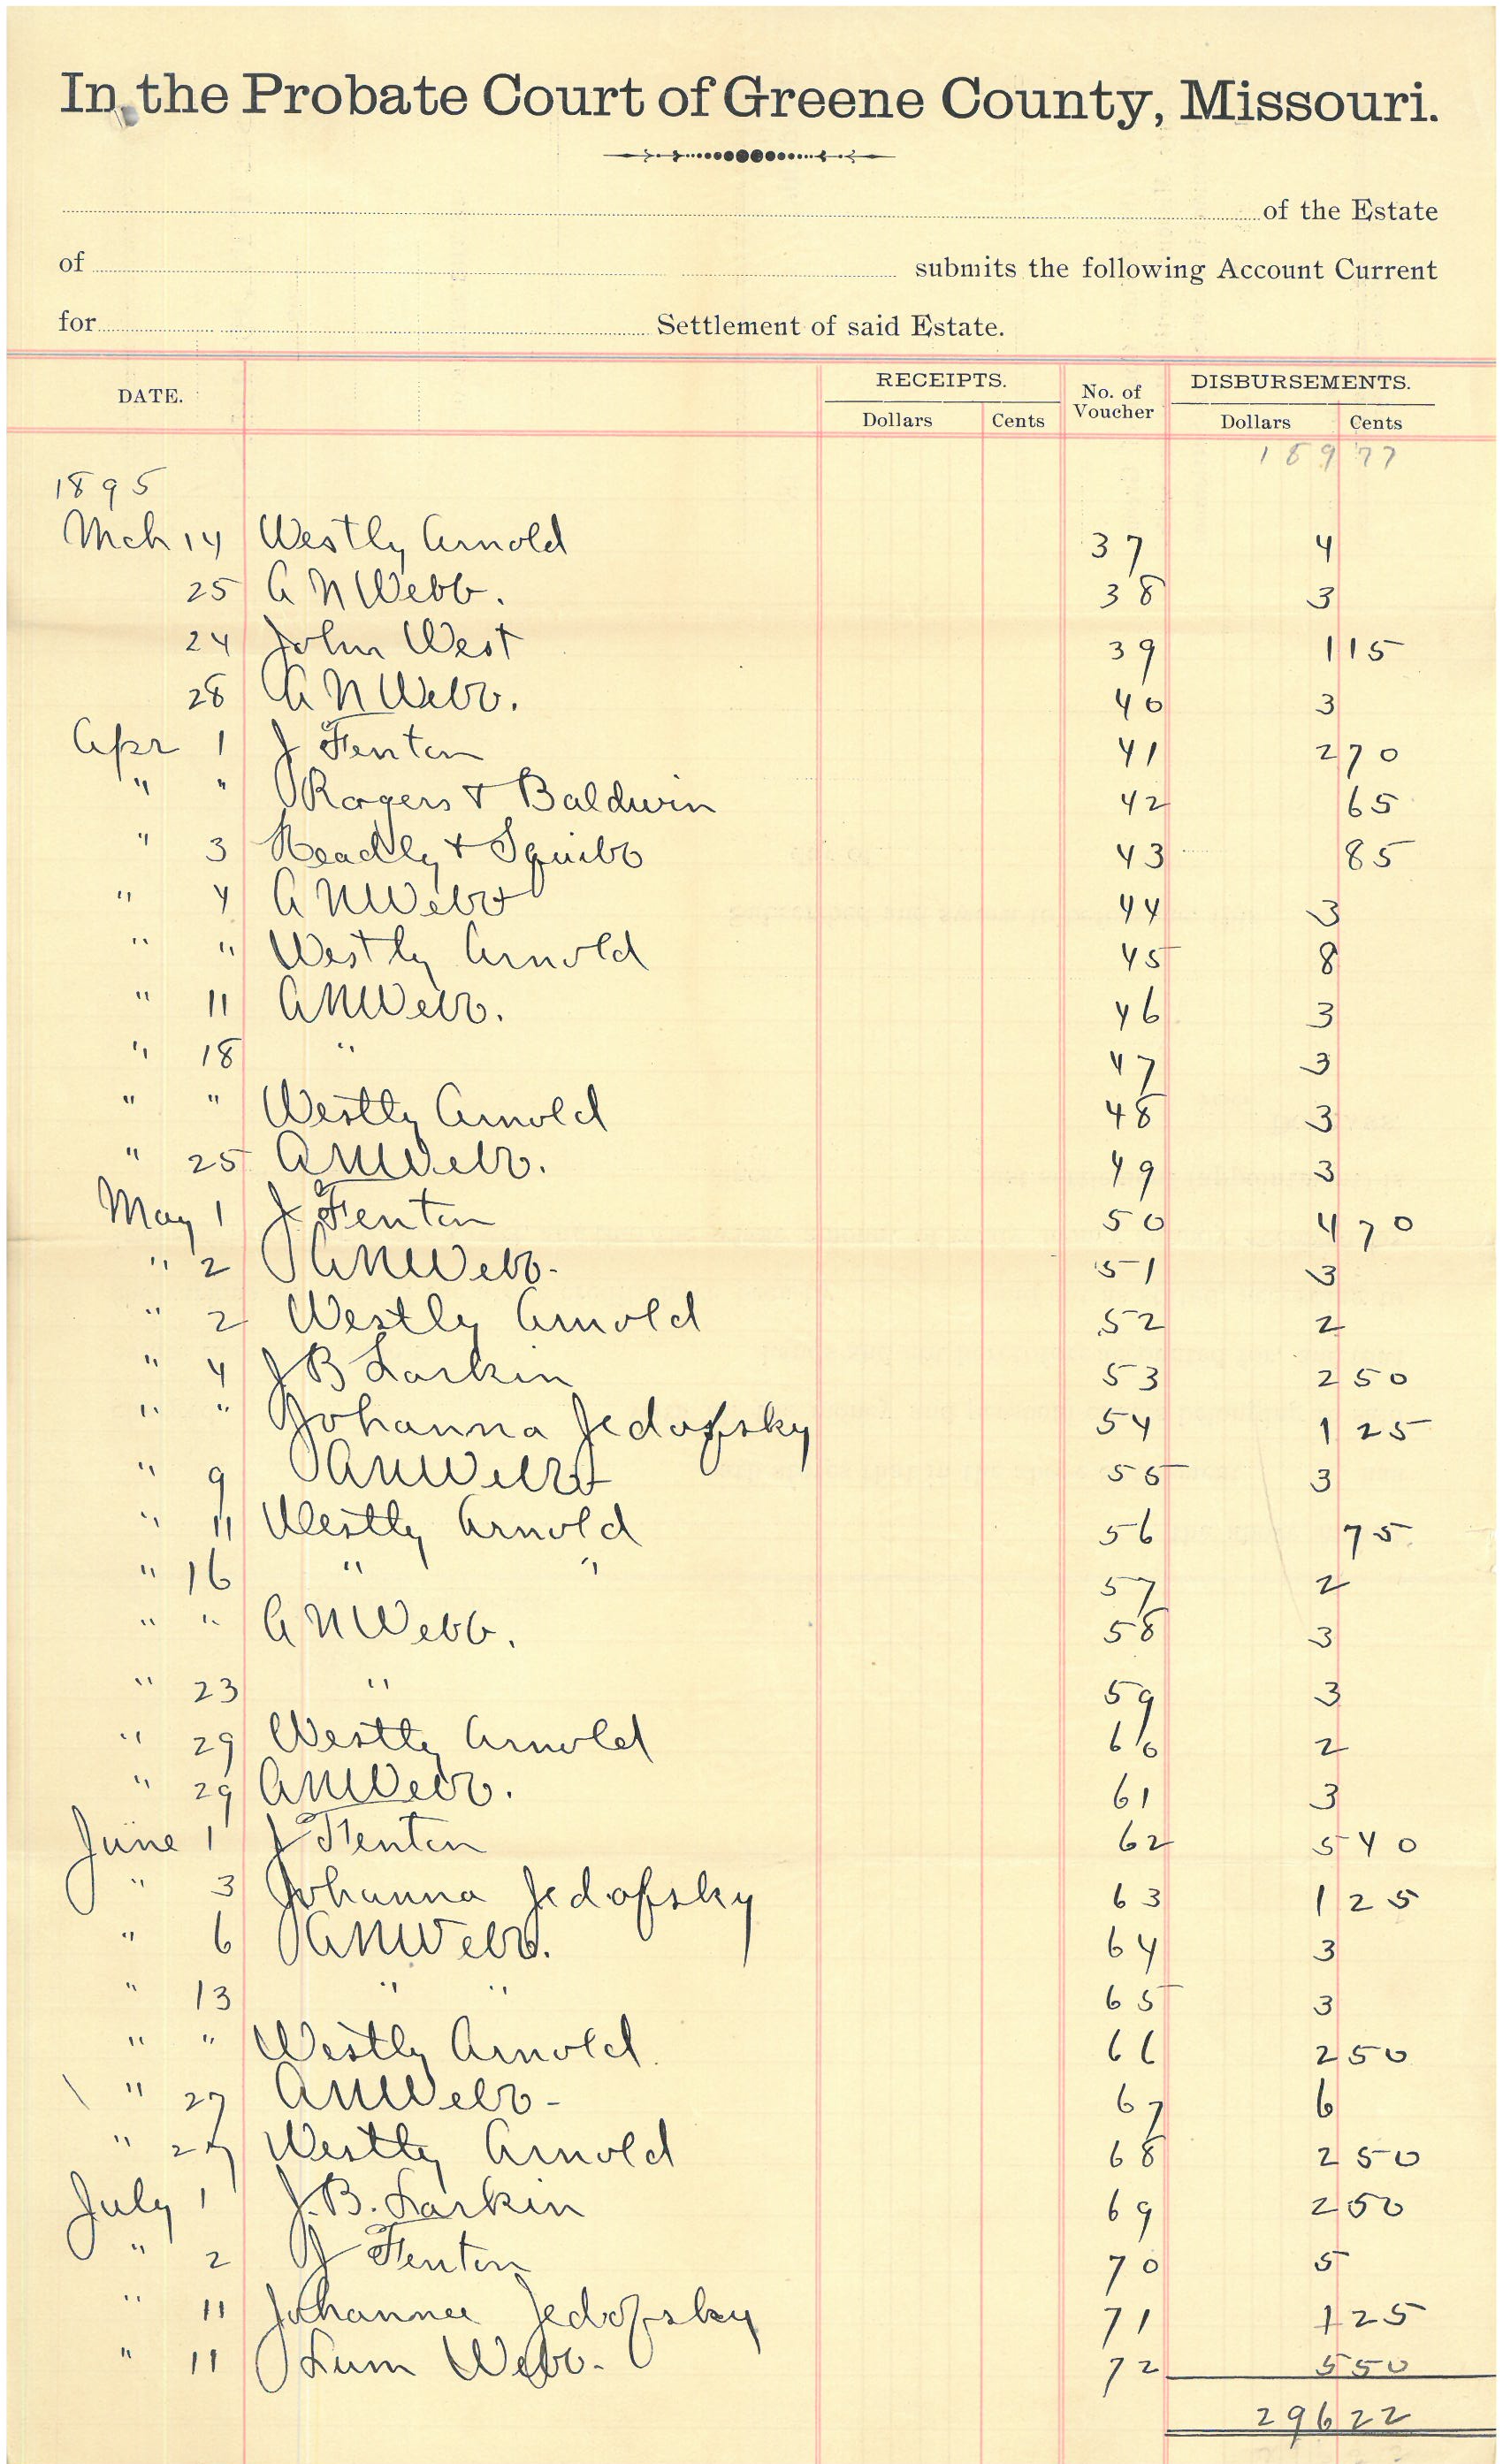 In the Probate Court of Greene County, Missouri.
of the Estate
of submits the following Account Current
for Settlement of said Estate.
DATE. RECEIPTS. No. of Voucher DISBURSEMENTS.
Dollars Cents Dollars Cents
189 77
1895
Mch 14 Westly Arnold 37 4
25 A N Webb. 38 3
24 John West 39 1 15
28 A N Webb. 40 3
Apr 1 J Fenton 41 2 70
" " Rogers & Baldwin 42 65
" 3 Headly & Squibb 43 85
" 4 A N Webb 44 3
" " Westly Arnold 45 8
" 11 A N Webb. 46 3
" 18 " 47 3
" " Westly Arnold 48 3
" 25 A N Webb. 49 3
May 1 J Fenton 50 4 70
" 2 A N Webb. 51 3
" 2 Westly Arnold 52 2
" 4 J B Larkin 53 2 50
" " Johanna Jedofsky 54 1 25
" 9 A N Webb 55 3
" 11 Westly Arnold 56 75
" 16 " " 57 2
" " A N Webb. 58 3
" 23 " 59 3
" 29 Westly Arnold 60 2
" 29 A N Webb. 61 3
June 1 J Fenton 62 5 40
" 3 Johanna Jedofsky 63 1 25
" 6 A N Webb. 64 3
" 13 " " 65 3
" " Westly Arnold. 66 2 50
" 27 A N Webb - 67 6
" 27 Westly Arnold 68 2 50
July 1 J. B. Larkin 69 2 50
" 2 J Fenton 70 5
" 11 Johanna Jedofsky 71 1 25
" 11 Lum Webb. 72 5 50
296 22